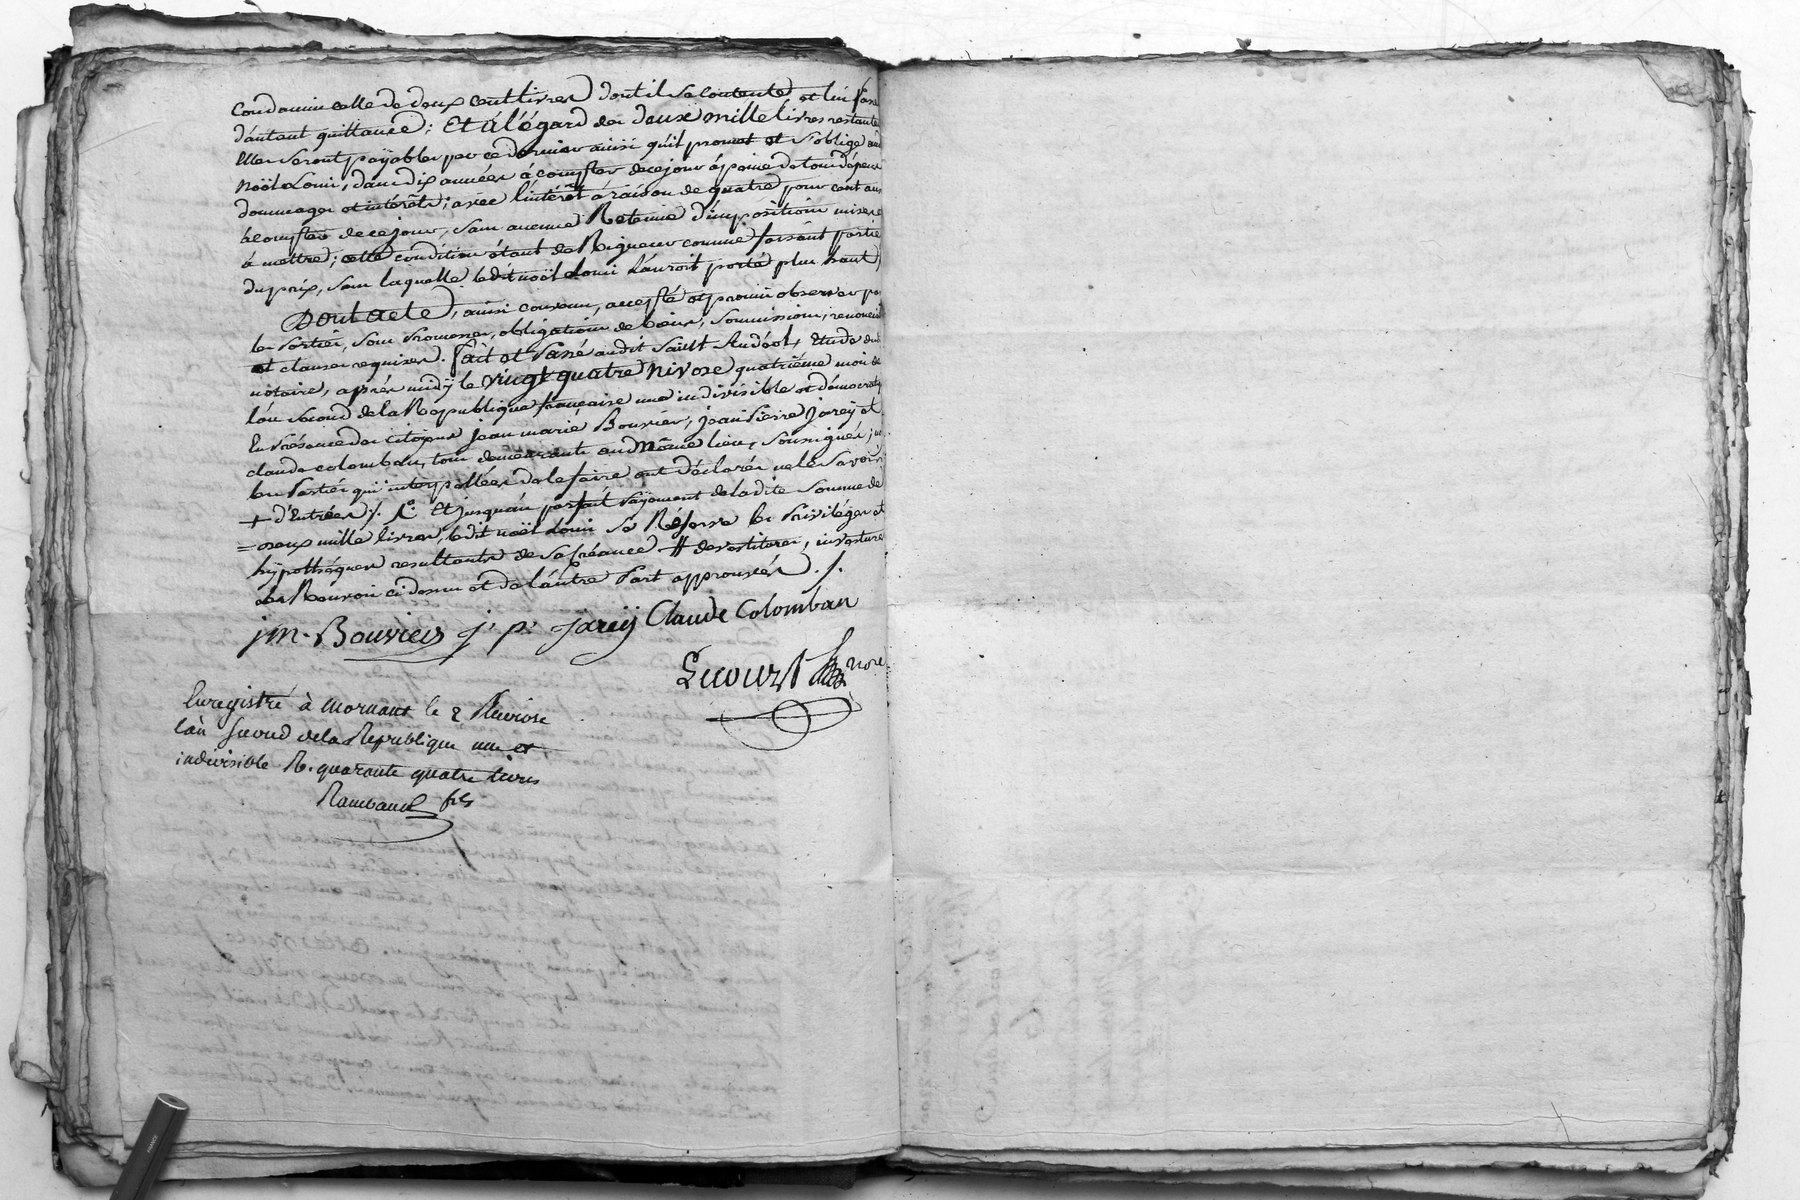 Condamin celle de deux cent livres dont il se contente et lui passe
d'autant quittance; Et à l'égard des deux mille livres restantes
Elles seront payables par ce dernier ainsi qu'il promet et s'oblige aud
noël Lomi, dans dix années à compter de ce jour à peine de tous dépens
dommages et intérêts; avec l'intérêt à raison de quatre pour cent aus
à compter de ce jour, sans aucune Retenue d'imposition mise ou
à mettre; cette condition étant de Rigueur comme faisant partie
du prix, sans laquelle ledit noël Lomi l'auroit porté plus haut;
Dont acte, ainsi convenu, accepté et promis observer par
les Parties, sous Promesses, obligations de biens, soumissions, renonciations
et clauses requises. fait et Passé audit Saint Andéol, Etude dudit
notaire, après midÿ le vingt quatre nivose quatrième mois de
l'an second de la République française une indivisible et démocratique
En Présence des citoyens jean marie Bouvier, jean Pierre jareÿ et
claude colomban, tous demeurants aud même lieu, soussignés; non
les Parties qui interpellées de le faire ont déclarés ne le savoir
+ d'Entrées ./. Et jusqu'au parfait Payement de ladite somme de
= deux mille livres, ledit noël Lomi se Réserve les Privilèges et
hÿpothéques resultants de sa Créance # devestitures, investitures
les Renvois ci dessus et de l'autre Part approuvés ./.
jm. Bouvier j. p. jareÿ Claude Colomban
Lucourt Nore
Enregistré à Mornant le 2 Pluviose
l'an second de la République une et
indivisible R. quarante quatre livres
Rambaud fils
FRANCE